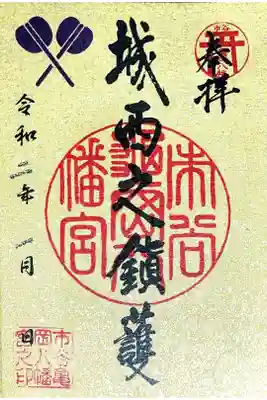 奉拝
城西之鎮護
市谷
幡宮
令和
年
月
日
市谷亀
岡八幡
宮之印